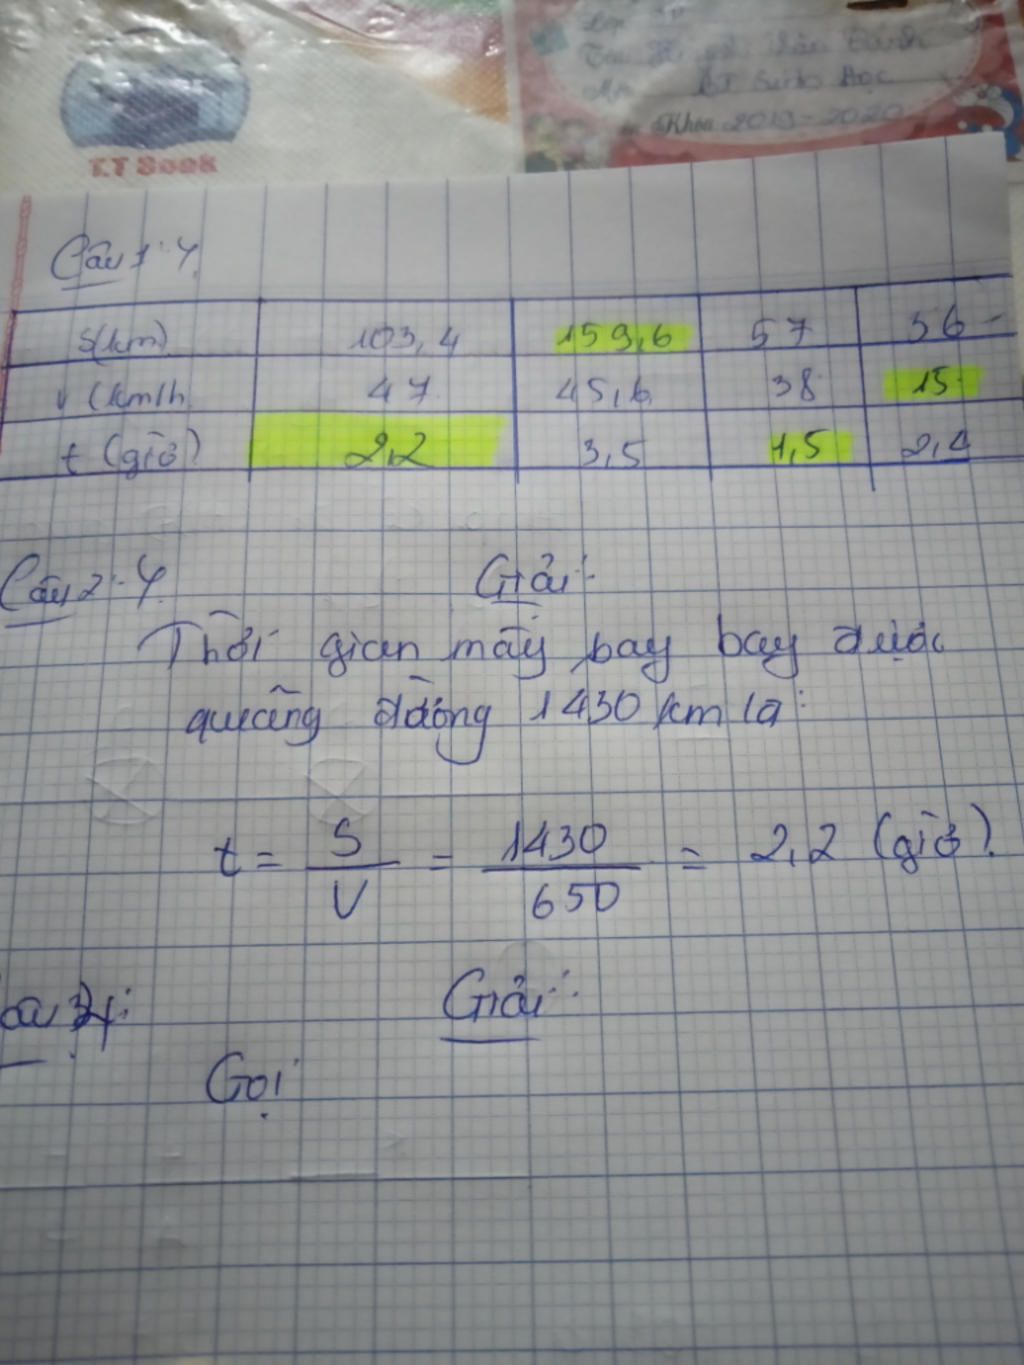 T.T Book
BT Sinh Học
Khóa 2019-2020
Câu 1:
S(km) 103,4 159,6 57 36
v (km/h 47 45,6 38 15
t (giờ) 2,2 3,5 1,5 2,4
Câu 2:
Giải:
Thời gian máy bay bay được
quãng đường 1430 km là:
t = S/V = 1430/650 = 2,2 (giờ).
Giải:
Gọi